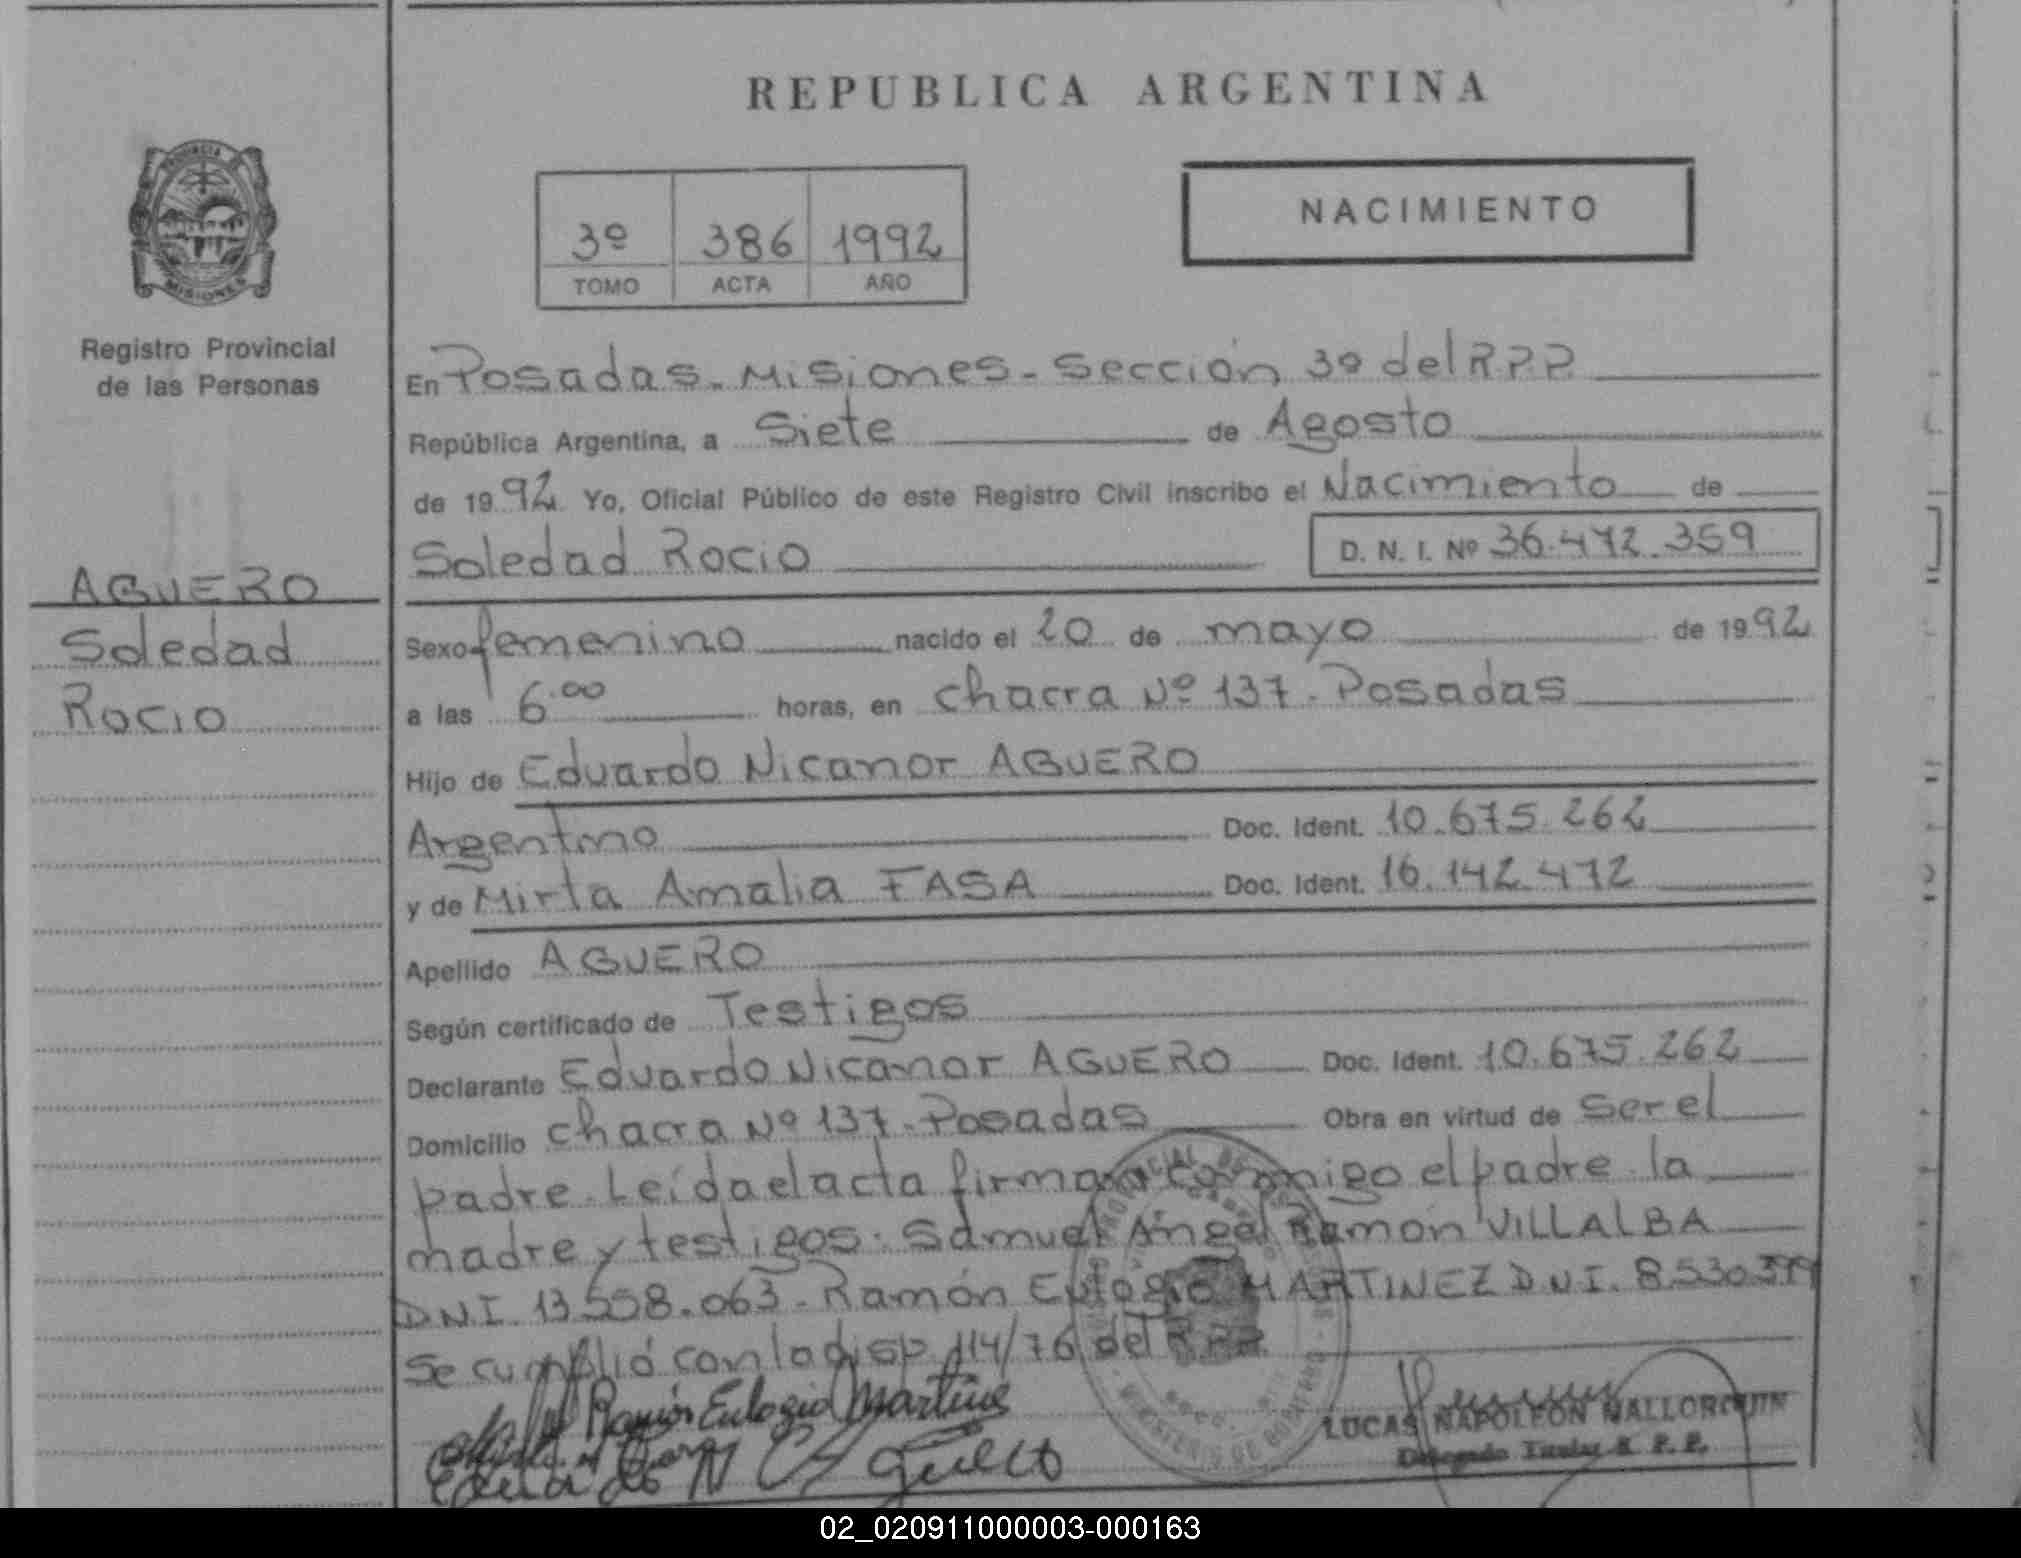 REPUBLICA ARGENTINA
PROVINCIA DE
MISIONES
Registro Provincial
de las Personas
AGUERO
Soledad
Rocio
3º 386 1992
TOMO ACTA AÑO
NACIMIENTO
En Posadas. Misiones - Sección 3º del R.P.P.
República Argentina, a Siete de Agosto
de 1992 Yo, Oficial Público de este Registro Civil inscribo el Nacimiento de
Soledad Rocio D. N. I. Nº 36.472.359
Sexo femenino nacido el 20 de mayo de 1992
a las 6.00 horas, en chacra Nº 137 - Posadas
Hijo de Eduardo Nicanor AGUERO
Argentino Doc. Ident. 10.675.262
y de Mirta Amalia FASA Doc. Ident. 16.142.472
Apellido AGUERO
Según certificado de Testigos
Declarante Eduardo Nicanor AGUERO Doc. Ident. 10.675.262
Domicilio chacra Nº 137 - Posadas Obra en virtud de Ser el
padre. Leída el acta firman conmigo el padre la
madre y testigos: Samuel Angel Ramón VILLALBA
DNI. 13.558.063 - Ramón Eulogio MARTINEZ D.N.I. 8.530.399
Se cumplió con la disp. 114/76 del R.P.P.
Ramón Eulogio Martines
LUCAS NAPOLEON MALLORQUIN
Delegado Titular R. P. P.
02_020911000003-000163